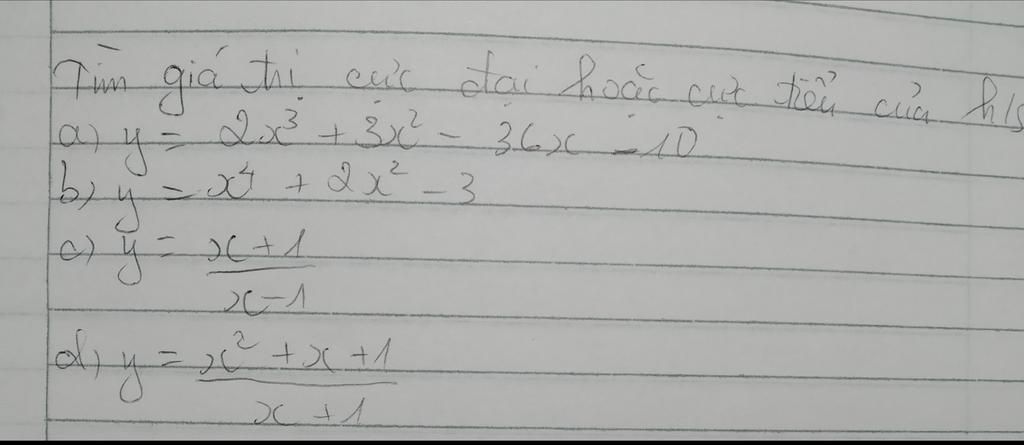 Tìm giá trị cực đại hoặc cực tiểu của h/s
a) y = 2x³ + 3x² - 36x - 10
b) y = x⁴ + 2x² - 3
c) y = x+1
x-1
d) y = x² + x + 1
x + 1